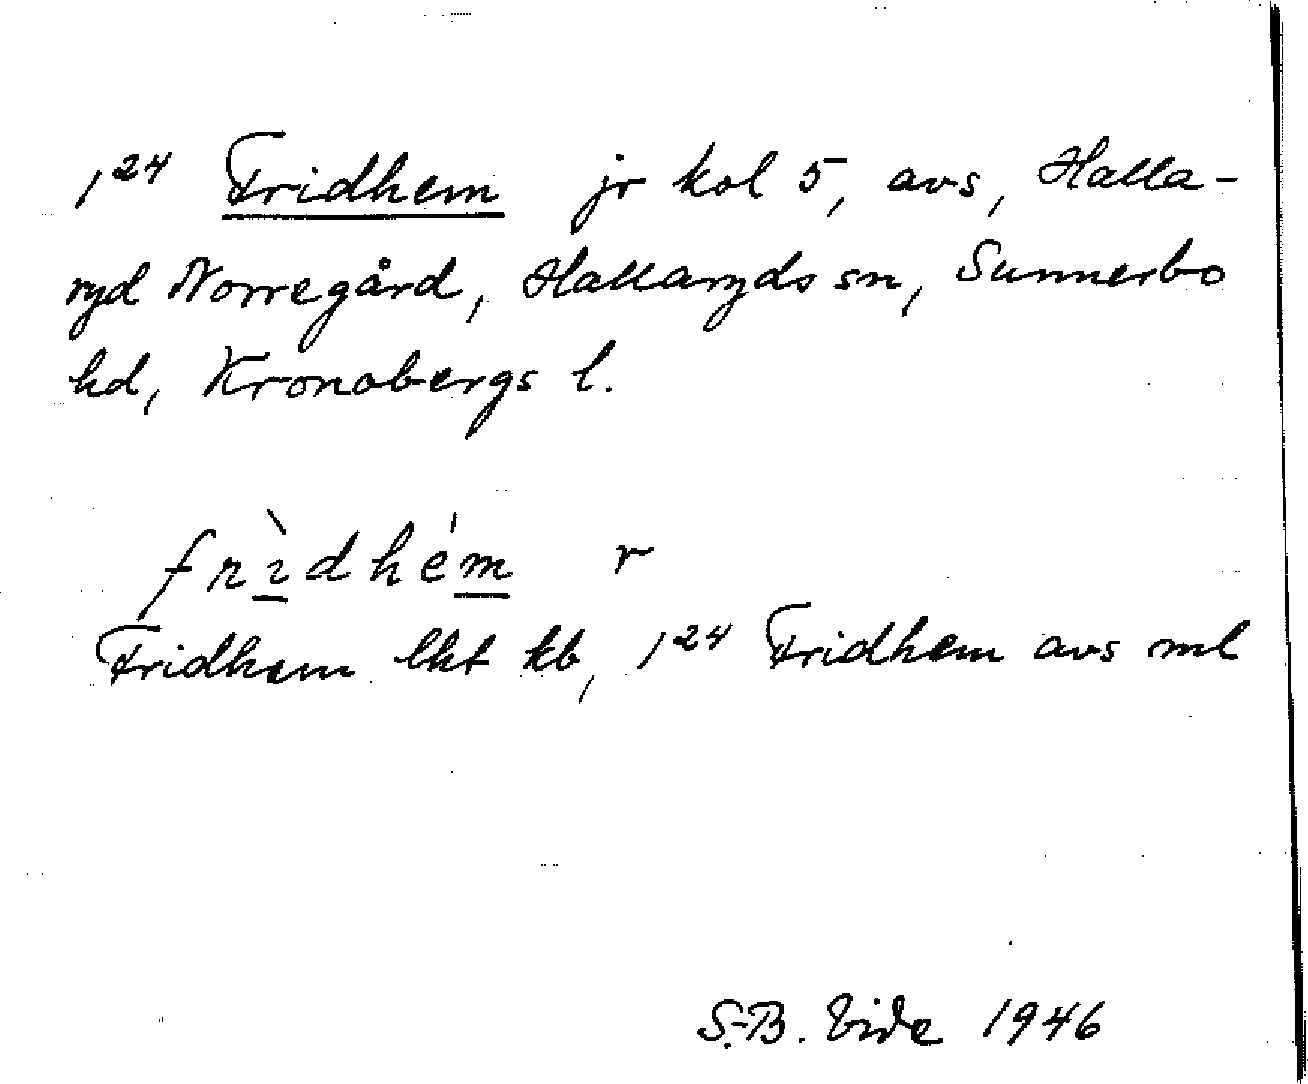 1²⁴ Fridhem jr kol 5, avs, Halla-
ryd Norregård, Hallaryds sn, Sunnerbo
hd, Kronobergs l.
frìdhém r
Fridhem lht kb, 1²⁴ Fridhem avs ml
S.-B. Vide 1946